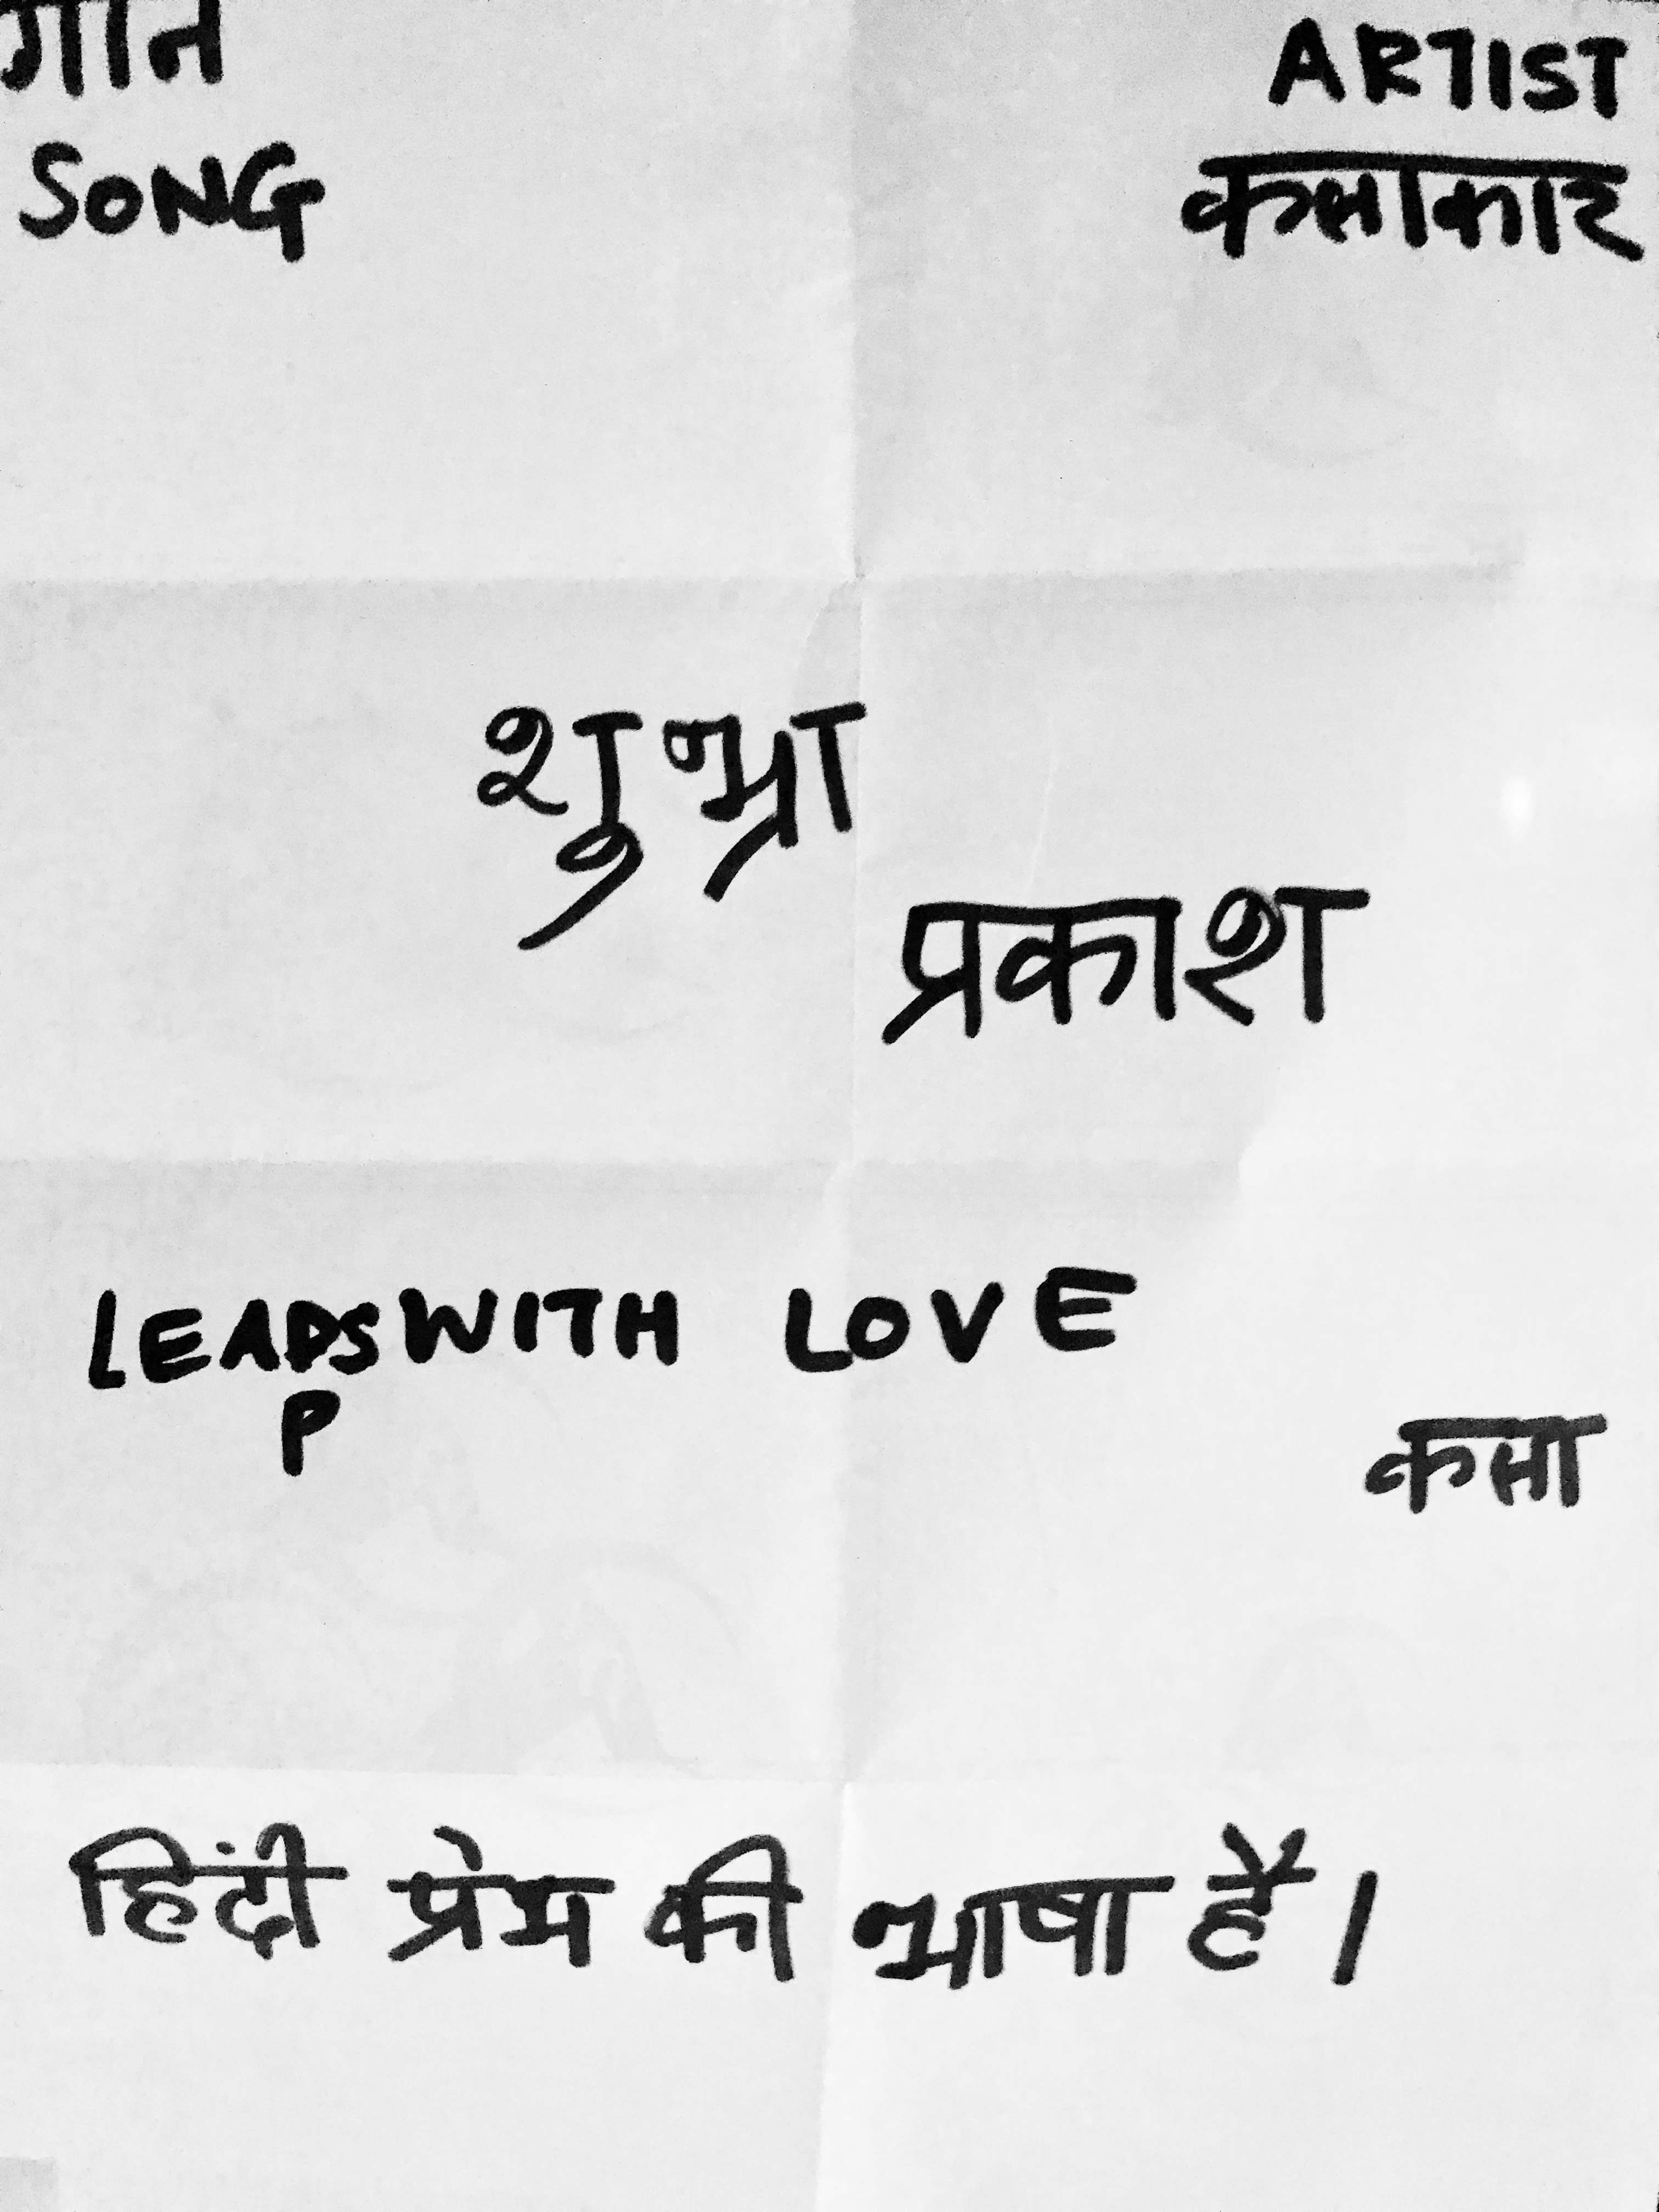 गान
SONG
ARTIST
कलाकार
शुभ्रा
प्रकाश
LEADS WITH LOVE
P
कला
हिंदी प्रेम की भाषा है।